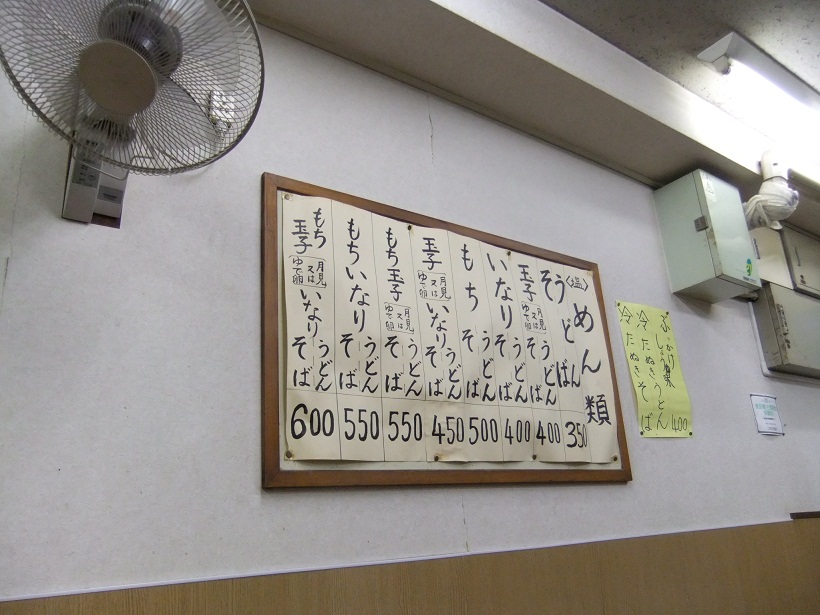 めん類
〈塩〉
うどん
そば
350
玉子
月見
又は
ゆで卵
うどん
そば
400
いなり
うどん
そば
400
もち
うどん
そば
500
玉子
月見
又は
ゆで卵
いなり
うどん
そば
450
もち玉子
月見
又は
ゆで卵
うどん
そば
550
もちいなり
うどん
そば
550
もち
玉子
月見
又は
ゆで卵
いなり
うどん
そば
600
ぶっかけ
冷たぬきうどん
冷たぬきそば
400